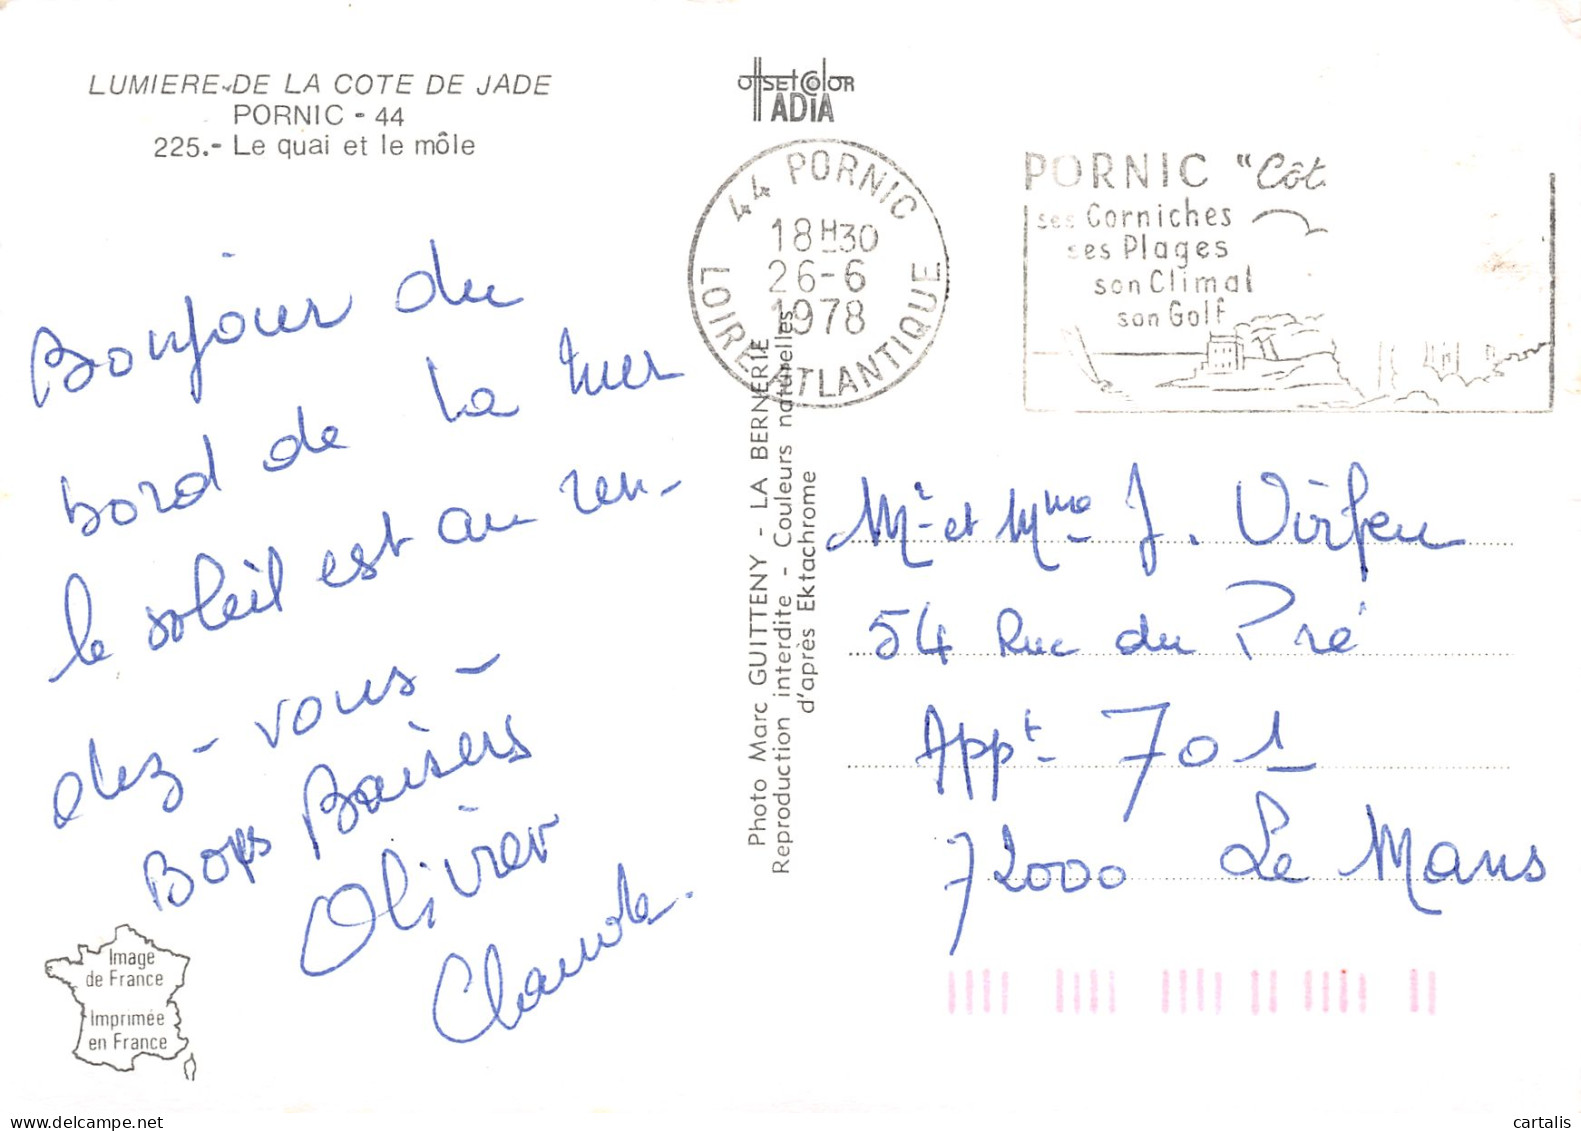 LUMIERE DE LA COTE DE JADE
PORNIC - 44
225.- Le quai et le môle
OffsetColor
ADIA
44 PORNIC
18H30
26-6
1978
LOIRE ATLANTIQUE
PORNIC "Côt
ses Corniches
ses Plages
son Climat
son Golf
Bonjour du
bord de la mer
le soleil est au ren-
dez-vous-
Bons Baisers
Olivier
Photo Marc GUITTENY - LA BERNERIE
Reproduction interdite - Couleurs naturelles
d'après Ektachrome
Mr et Mme J.
54 Rue du Pré
Appt 701
72000 Le Mans
Image
de France
Imprimée
en France
cartalis
www.delcampe.net